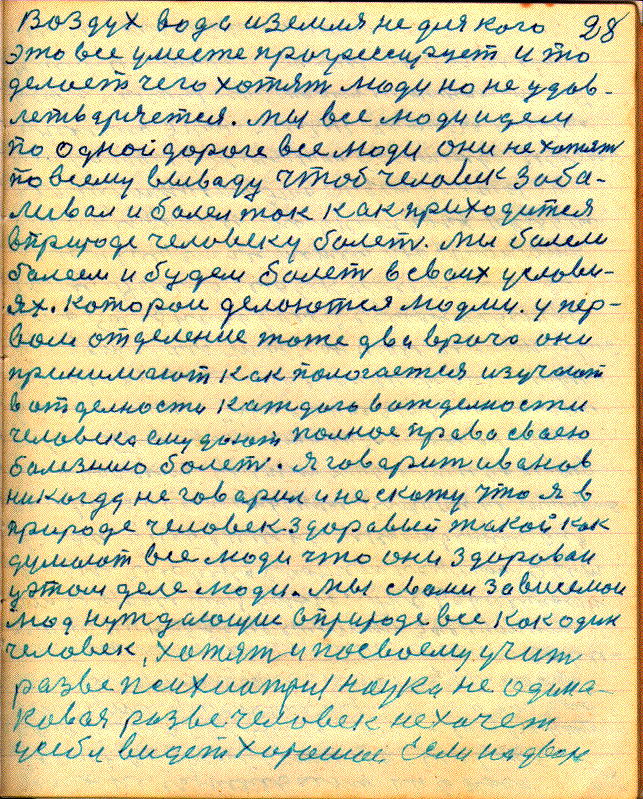 Воздух вода и земля не для кого 28
это все уместе прогрессирует и то
делает чего хотят люди но не удов-
летваряется. мы все люди идем
по одной дороге все люди они не хотят
по всему вываду чтоб человек заба-
ливал и болел так как приходится
в природе человеку болет. Мы болели
болеем и будем болет в своих услови-
ях. Которои делаются людми. у пер-
вом отделение тоже два врача они
принимают как пологается изучают
в отделности каждого в отделности
человека ему дают полное право своею
болезнию болет. я говарит иванов
никогда не говарил и не скажу что я в
природе человек здоравый такой как
думают все люди что они здороваи
у этом деле люди. Мы с вами зависемои
люд нуждающие в природе все как один
человек, хотят и посвоему учит
разве психиатрия наука не одина-
ковая разве человек не хочет
у себя видет хорошее Если на дворе